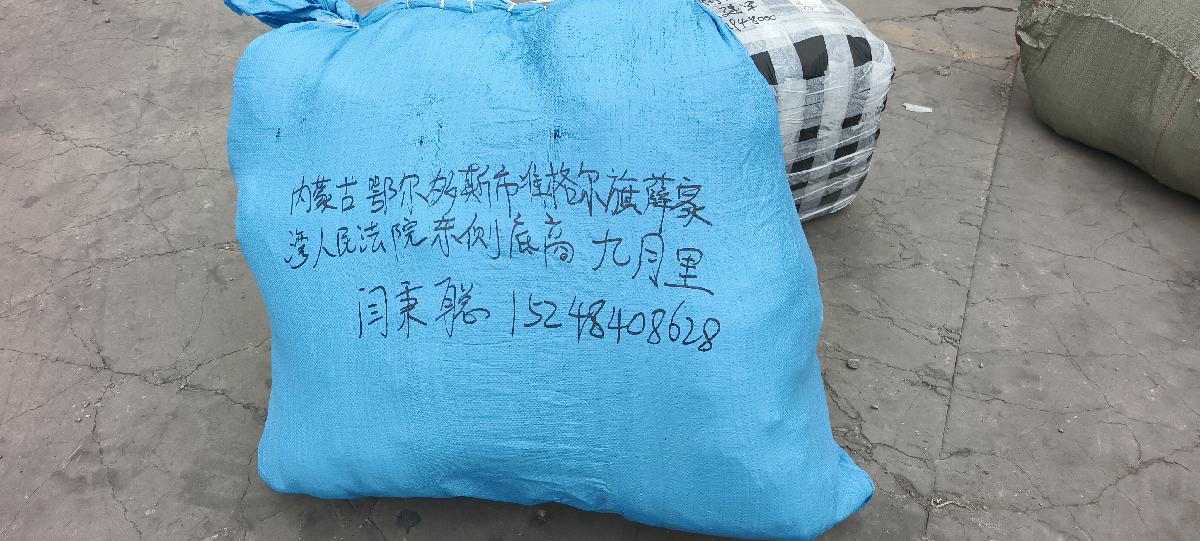 内蒙古鄂尔多斯市准格尔旗薛家
湾人民法院东侧底商 九月里
闫秉聪 15248408628